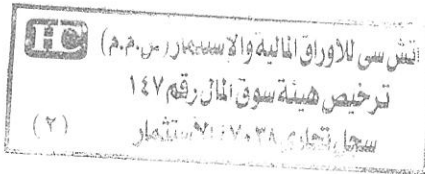 اتش سى للاوراق المالية والاستثمار (ش.م.م) HC
ترخيص هيئة سوق المال رقم ١٤٧
سجل تجارى الاستثمار
(٢)